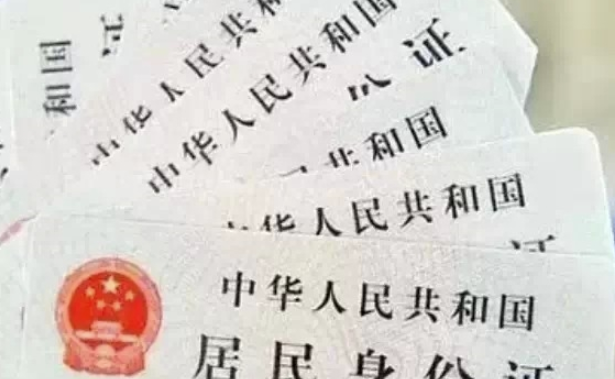 和国
证
中华人民共和国
中华人民共和国
份证
共和国
中华人民共和国
证
中华人民共和国
居民身份证